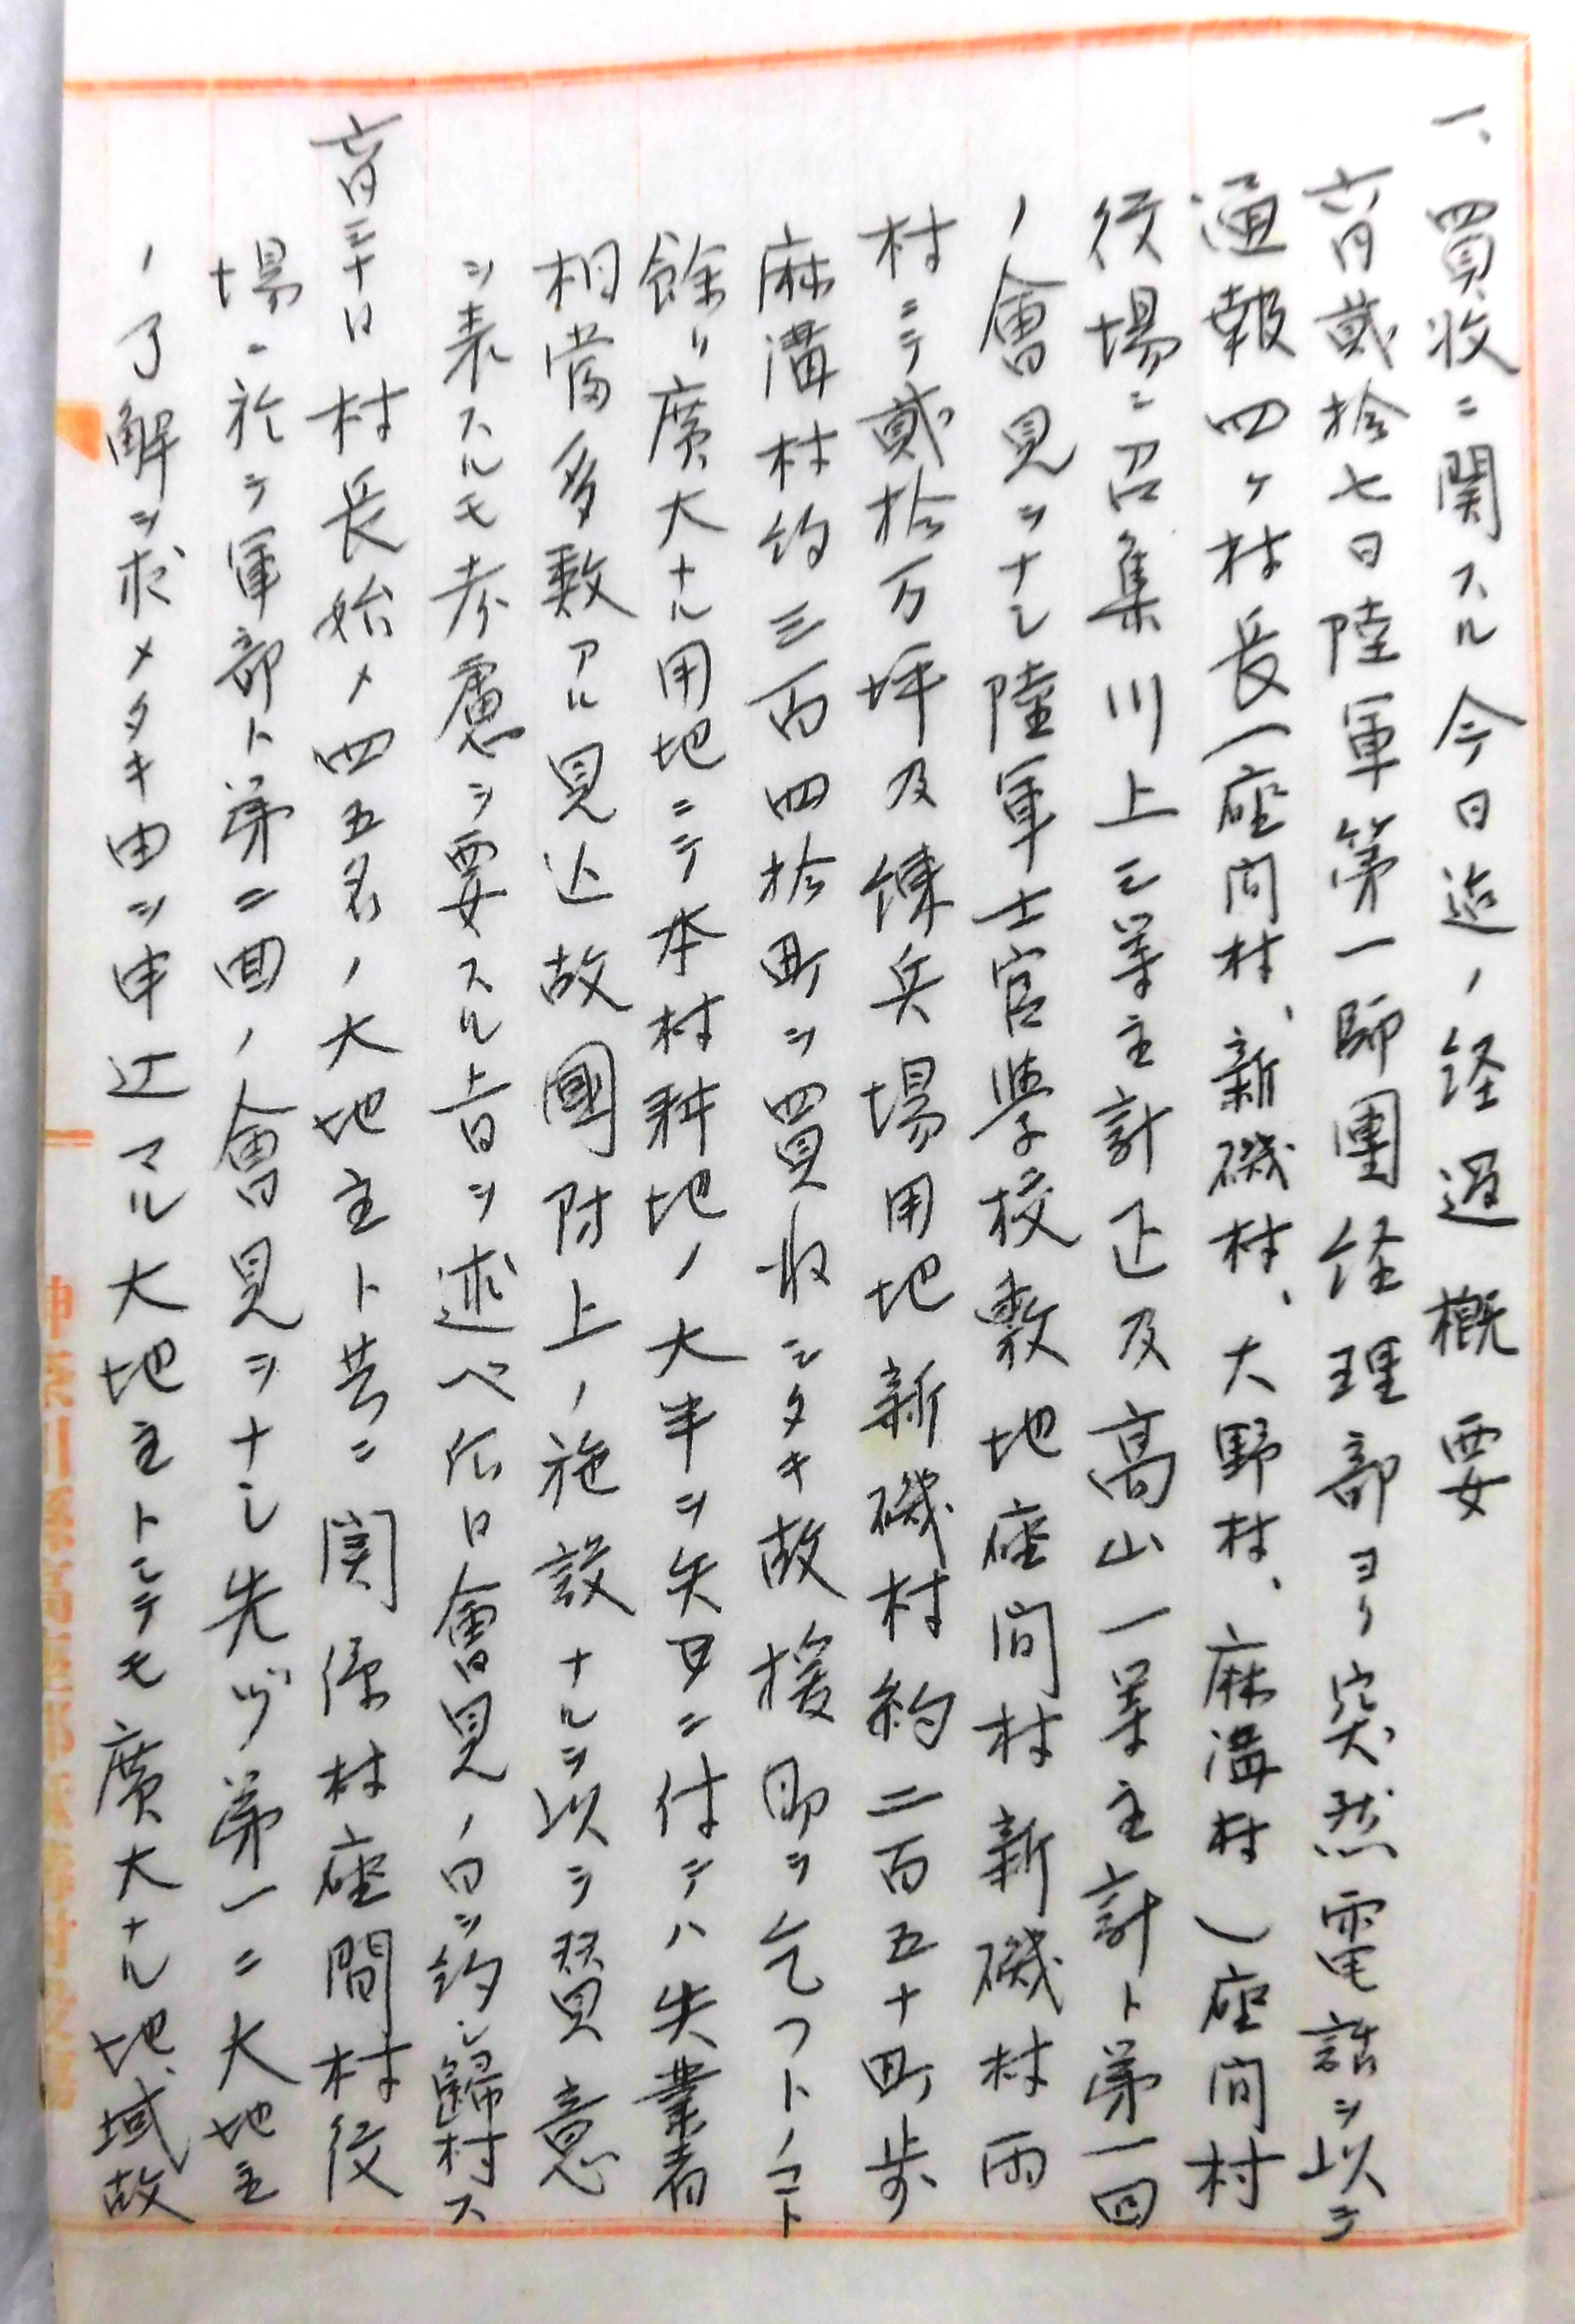 一、買收ニ関スル今日迠ノ経過概要
六月貳拾七日陸軍第一師團経理部ヨリ突然電話ヲ以テ
通報四ヶ村長(座间村、新磯村、大野村、麻溝村)座间村
役場ニ召集川上三等主計正及高山一等主計ト第一回
ノ會見ヲナシ陸軍士官学校敷地座间村新磯村両
村ニテ貳拾万坪及練兵場用地新磯村約二百五十町歩
麻溝村約三百四拾町ヲ買收シタキ故援助ヲ乞フトノコト
餘リ廣大ナル用地ニテ本村耕地ノ大半ヲ失フニ付テハ失業者
相當多数アル見込故國防上ノ施設ナルヲ以テ翼賛意
ヲ表スルモ考慮ヲ要スル旨ヲ述ベ仝日會見ノ口ヲ約シ歸村ス
六月三十日村長始メ四五名ノ大地主ト共ニ関係村座間村役
場ニ於テ軍部ト第二回ノ會見ヲナシ先ヅ第一ニ大地主
ノ了解ヲ求メタキ由ヲ申込マル大地主トシテモ廣大ナル地域故